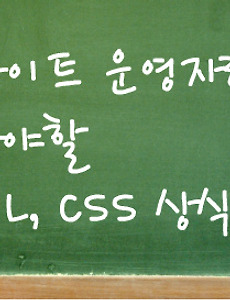 이트 운영자
야할
L, CSS 상식